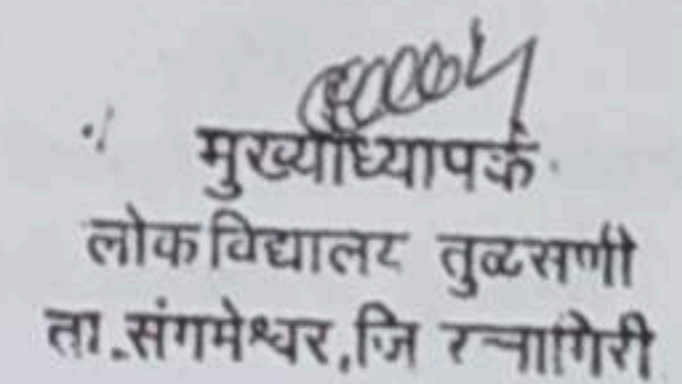 मुख्याध्यापक
लोकविद्यालय तुळसणी
ता.संगमेश्वर,जि रत्नागिरी